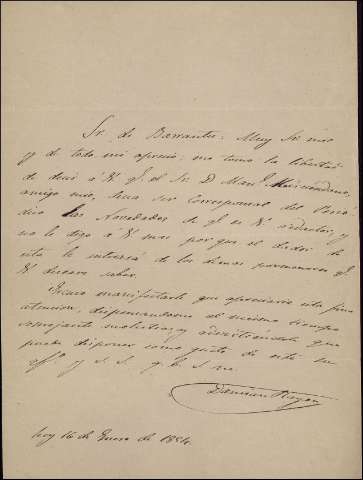 Sr. de Barrantes: Muy Sr. mio
y de todo mi aprecio: me tomo la libertad
de decir á V. q. el Sr. D. Man.l
amigo mio, desea ser Corresponsal del Perió
dico Las Novedades de q. es V. redactor, y
no le digo á V. mas por que el dador de
esta le enterará de los demas pormenores q.
V. desease saber.
Escuso manifestarle que apreciaria esta fina
atencion, dispensandome al mismo tiempo
semejante molestia, y advirtiendole que
puede disponer como guste de este su
aff.o y S. S. q. b. s. m.
Damian Rayon
hoy 16 de Enero de 1854.